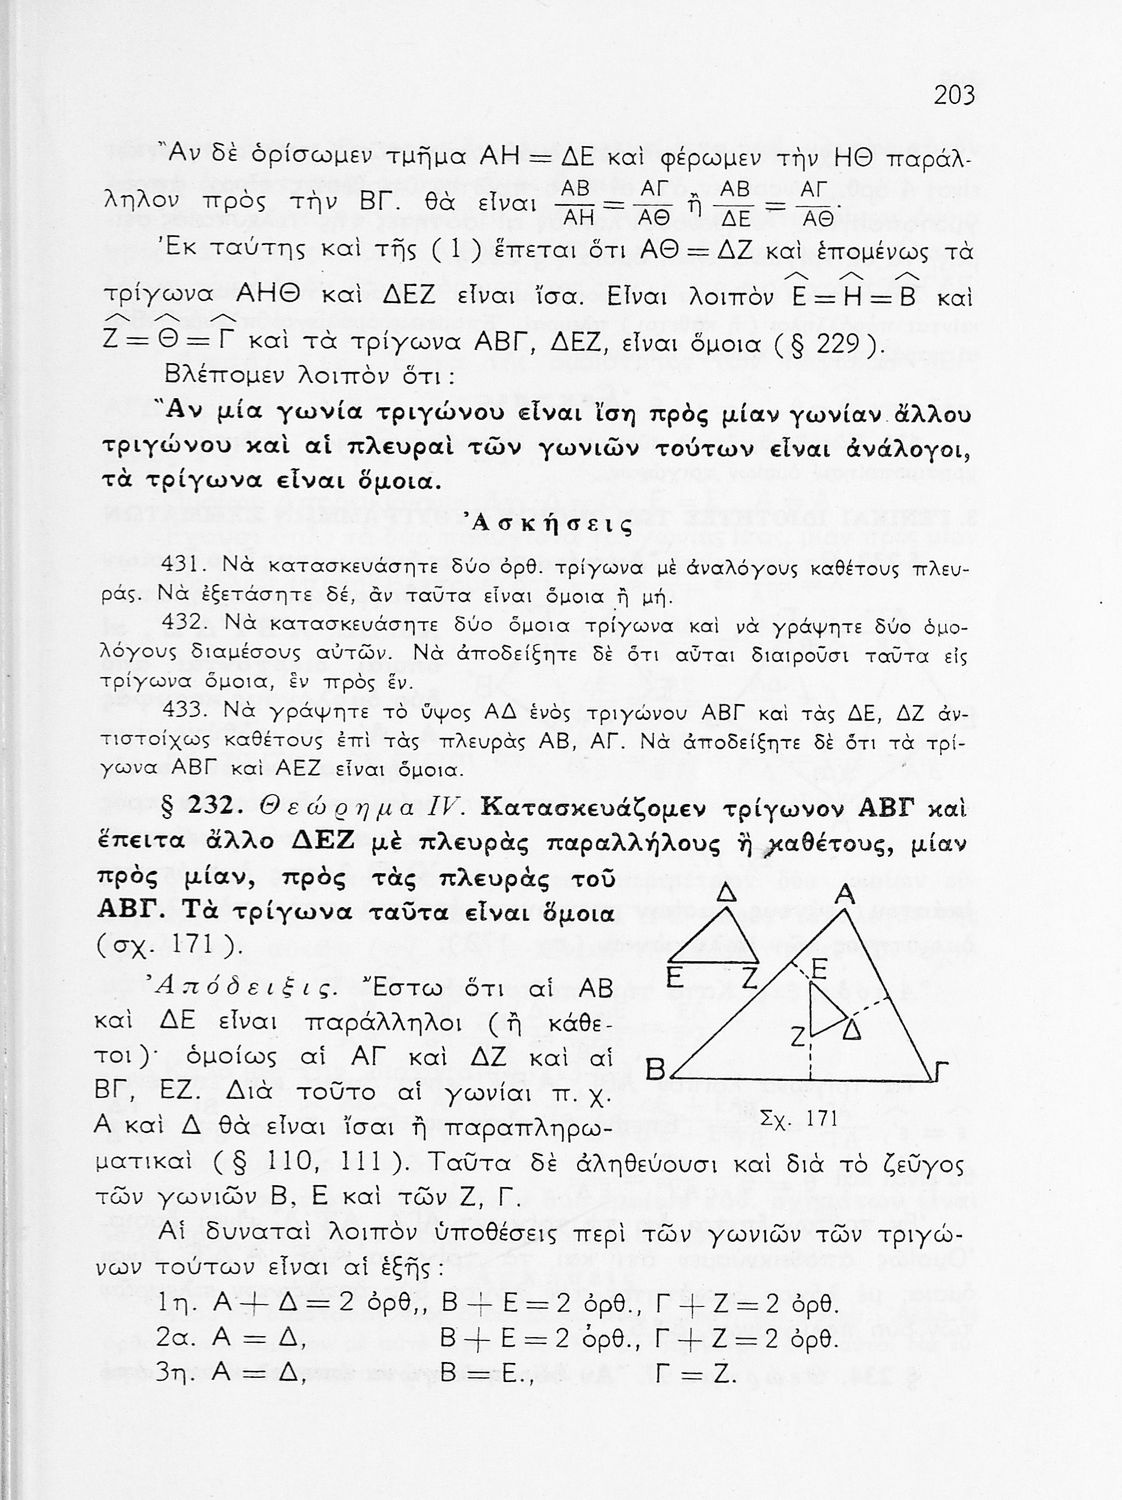 203
Ἂν δὲ ὁρίσωμεν τμῆμα ΑΗ = ΔΕ καὶ φέρωμεν τὴν ΗΘ παράλ-
ληλον πρὸς τὴν ΒΓ. θὰ εἶναι ΑΒ/ΑΗ = ΑΓ/ΑΘ ἢ ΑΒ/ΔΕ = ΑΓ/ΑΘ·
Ἐκ ταύτης καὶ τῆς ( 1 ) ἕπεται ὅτι ΑΘ = ΔΖ καὶ ἑπομένως τὰ
τρίγωνα ΑΗΘ καὶ ΔΕΖ εἶναι ἴσα. Εἶναι λοιπὸν Ε̂ = Η̂ = Β̂ καὶ
Ζ̂ = Θ̂ = Γ̂ καὶ τὰ τρίγωνα ΑΒΓ, ΔΕΖ, εἶναι ὅμοια ( § 229 ).
Βλέπομεν λοιπὸν ὅτι :
Ἂν μία γωνία τριγώνου εἶναι ἴση πρὸς μίαν γωνίαν ἄλλου
τριγώνου καὶ αἱ πλευραὶ τῶν γωνιῶν τούτων εἶναι ἀνάλογοι,
τὰ τρίγωνα εἶναι ὅμοια.
Ἀσκήσεις
431. Νὰ κατασκευάσητε δύο ὀρθ. τρίγωνα μὲ ἀναλόγους καθέτους πλευ-
ράς. Νὰ ἐξετάσητε δέ, ἂν ταῦτα εἶναι ὅμοια ἢ μή.
432. Νὰ κατασκευάσητε δύο ὅμοια τρίγωνα καὶ νὰ γράψητε δύο ὁμο-
λόγους διαμέσους αὐτῶν. Νὰ ἀποδείξητε δὲ ὅτι αὗται διαιροῦσι ταῦτα εἰς
τρίγωνα ὅμοια, ἓν πρὸς ἕν.
433. Νὰ γράψητε τὸ ὕψος ΑΔ ἑνὸς τριγώνου ΑΒΓ καὶ τὰς ΔΕ, ΔΖ ἀν-
τιστοίχως καθέτους ἐπὶ τὰς πλευρὰς ΑΒ, ΑΓ. Νὰ ἀποδείξητε δὲ ὅτι τὰ τρί-
γωνα ΑΒΓ καὶ ΑΕΖ εἶναι ὅμοια.
§ 232. Θεώρημα IV. Κατασκευάζομεν τρίγωνον ΑΒΓ καὶ
ἔπειτα ἄλλο ΔΕΖ μὲ πλευρὰς παραλλήλους ἢ καθέτους, μίαν
πρὸς μίαν, πρὸς τὰς πλευρὰς τοῦ
ΑΒΓ. Τὰ τρίγωνα ταῦτα εἶναι ὅμοια
( σχ. 171 ).
Ἀπόδειξις. Ἔστω ὅτι αἱ ΑΒ
καὶ ΔΕ εἶναι παράλληλοι ( ἢ κάθε-
τοι )· ὁμοίως αἱ ΑΓ καὶ ΔΖ καὶ αἱ
ΒΓ, ΕΖ. Διὰ τοῦτο αἱ γωνίαι π. χ.
Α καὶ Δ θὰ εἶναι ἴσαι ἢ παραπληρω-
Δ Α
Ε Ζ Ε
Ζ Δ
Β Γ
Σχ. 171
ματικαὶ ( § 110, 111 ). Ταῦτα δὲ ἀληθεύουσι καὶ διὰ τὸ ζεῦγος
τῶν γωνιῶν Β, Ε καὶ τῶν Ζ, Γ.
Αἱ δυναταὶ λοιπὸν ὑποθέσεις περὶ τῶν γωνιῶν τῶν τριγώ-
νων τούτων εἶναι αἱ ἑξῆς :
1η. Α + Δ = 2 ὀρθ,, Β + Ε = 2 ὀρθ., Γ + Ζ = 2 ὀρθ.
2α. Α = Δ, Β + Ε = 2 ὀρθ., Γ + Ζ = 2 ὀρθ.
3η. Α = Δ, Β = Ε., Γ = Ζ.